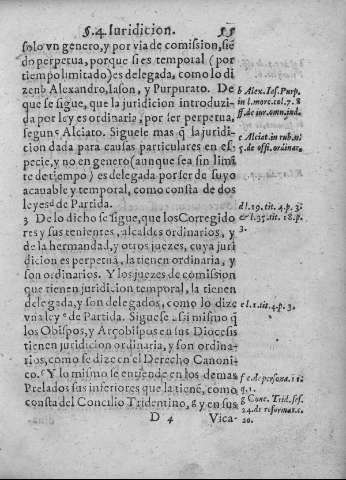 §.4. Iuridicion. 55
solo vn genero, y por via de comision, siē
do perpetua, porque si es temporal (por
tiempo limitado) es delegada, como lo di
zen b Alexandro, Iason, y Purpurato. De
que se sigue, que la juridicion introduzi
da por ley es ordinaria, por ser perpetua,
segun c Alciato. Siguese mas q̃ la juridi-
cion dada para causas particulares en es-
pecie, y no en genero (aunque sea sin limi
te de tiempo) es delegada por ser de suyo
acauable y temporal, como consta de dos
leyes d de Partida.
3 De lo dicho se sigue, que los Corregido
res y sus tenientes, alcaldes ordinarios, y
de la hermandad, y otros juezes, cuya juri
dicion es perpetua, la tienen ordinaria, y
son ordinarios. Y los juezes de comission
que tienen juridicion temporal, la tienen
delegada, y son delegados, como lo dize
vna ley e de Partida. Siguese assi mismo q̃
los Obispos, y Arçobispos en sus Diocesis
tienen juridicion ordinaria, y son ordina-
rios, como se dize en el Derecho Canoni-
co. f Y lo mismo se entiende en los demas
Prelados sus inferiores que la tienē, como
consta del Concilio Tridentino, g y en sus
D 4 Vica-
b Alex. Ias. Purp.
in l. more. col. 7. 8
ff. de iur. omn. iud.
c Alciat. in rub. nu
5. de offi. ordinar.
d l. 19. tit. 4. p. 3.
& l. 35. tit. 18. p.
3.
e l. 1. tit. 4. p. 3.
f c. de persona. 11.
q. 1.
g Conc. Trid. ses.
24. de reformat. c.
20.